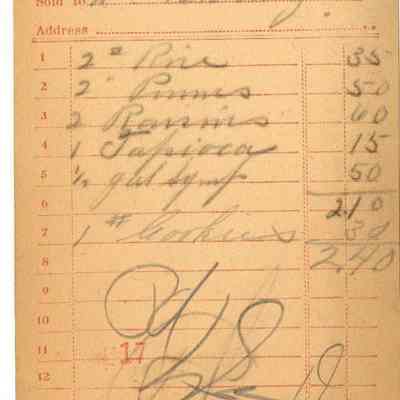 Sold to
Address
1 2# Rice 35
2 2" Prunes 50
3 2 Raisins 60
4 1 Tapioca 15
5 1/2 gal syrup 50
6 210
7 1 # Cookies 30
8 240
9
10
11 17
12